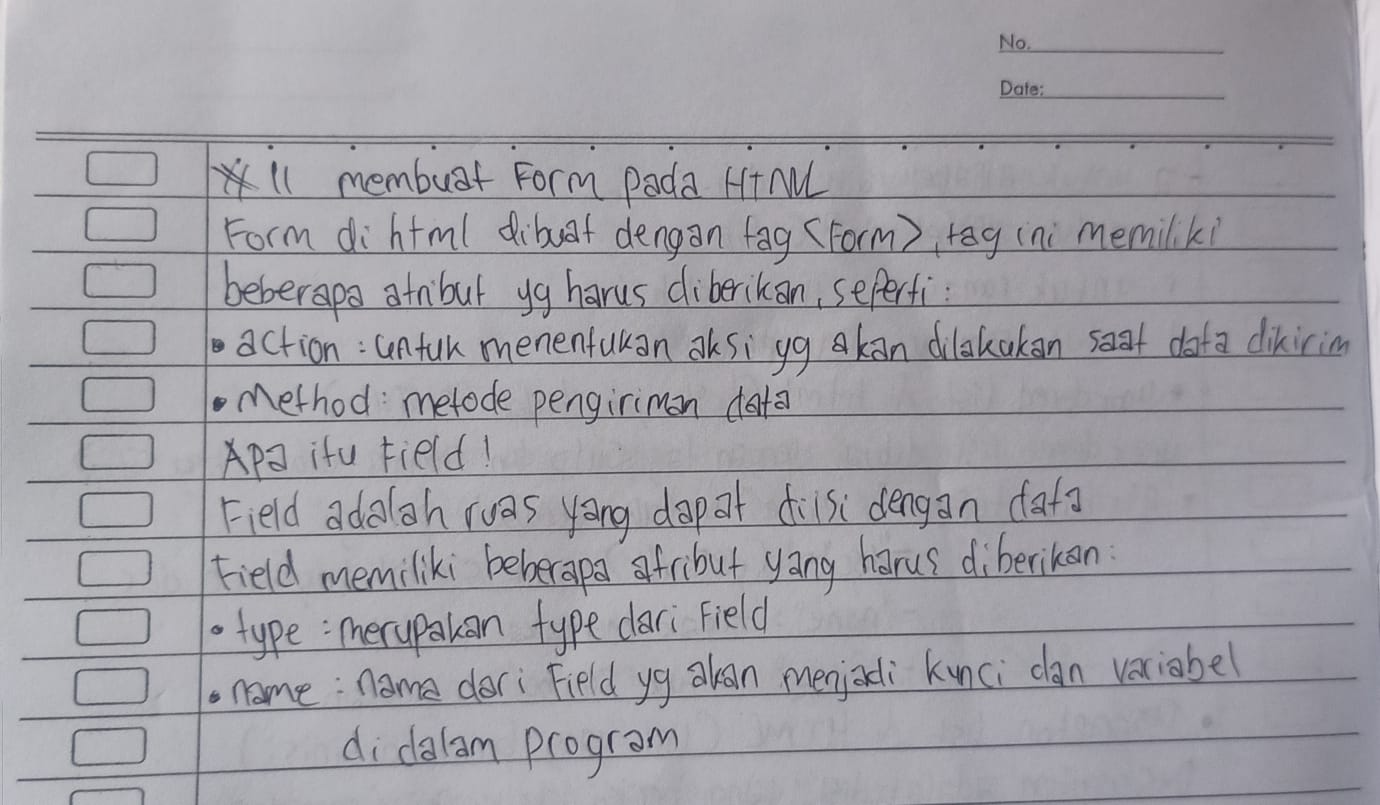 No.
Date:
11 membuat Form pada HTML
Form di html dibuat dengan tag <Form>, tag ini memiliki
beberapa atribut yg harus diberikan, seperti:
• action: untuk menentukan aksi yg akan dilakukan saat data dikirim
• Method: metode pengiriman data
Apa itu Field!
Field adalah ruas yang dapat diisi dengan data
Field memiliki beberapa atribut yang harus diberikan:
• type: merupakan type dari Field
• name: nama dari Field yg akan menjadi kunci dan variabel
didalam program